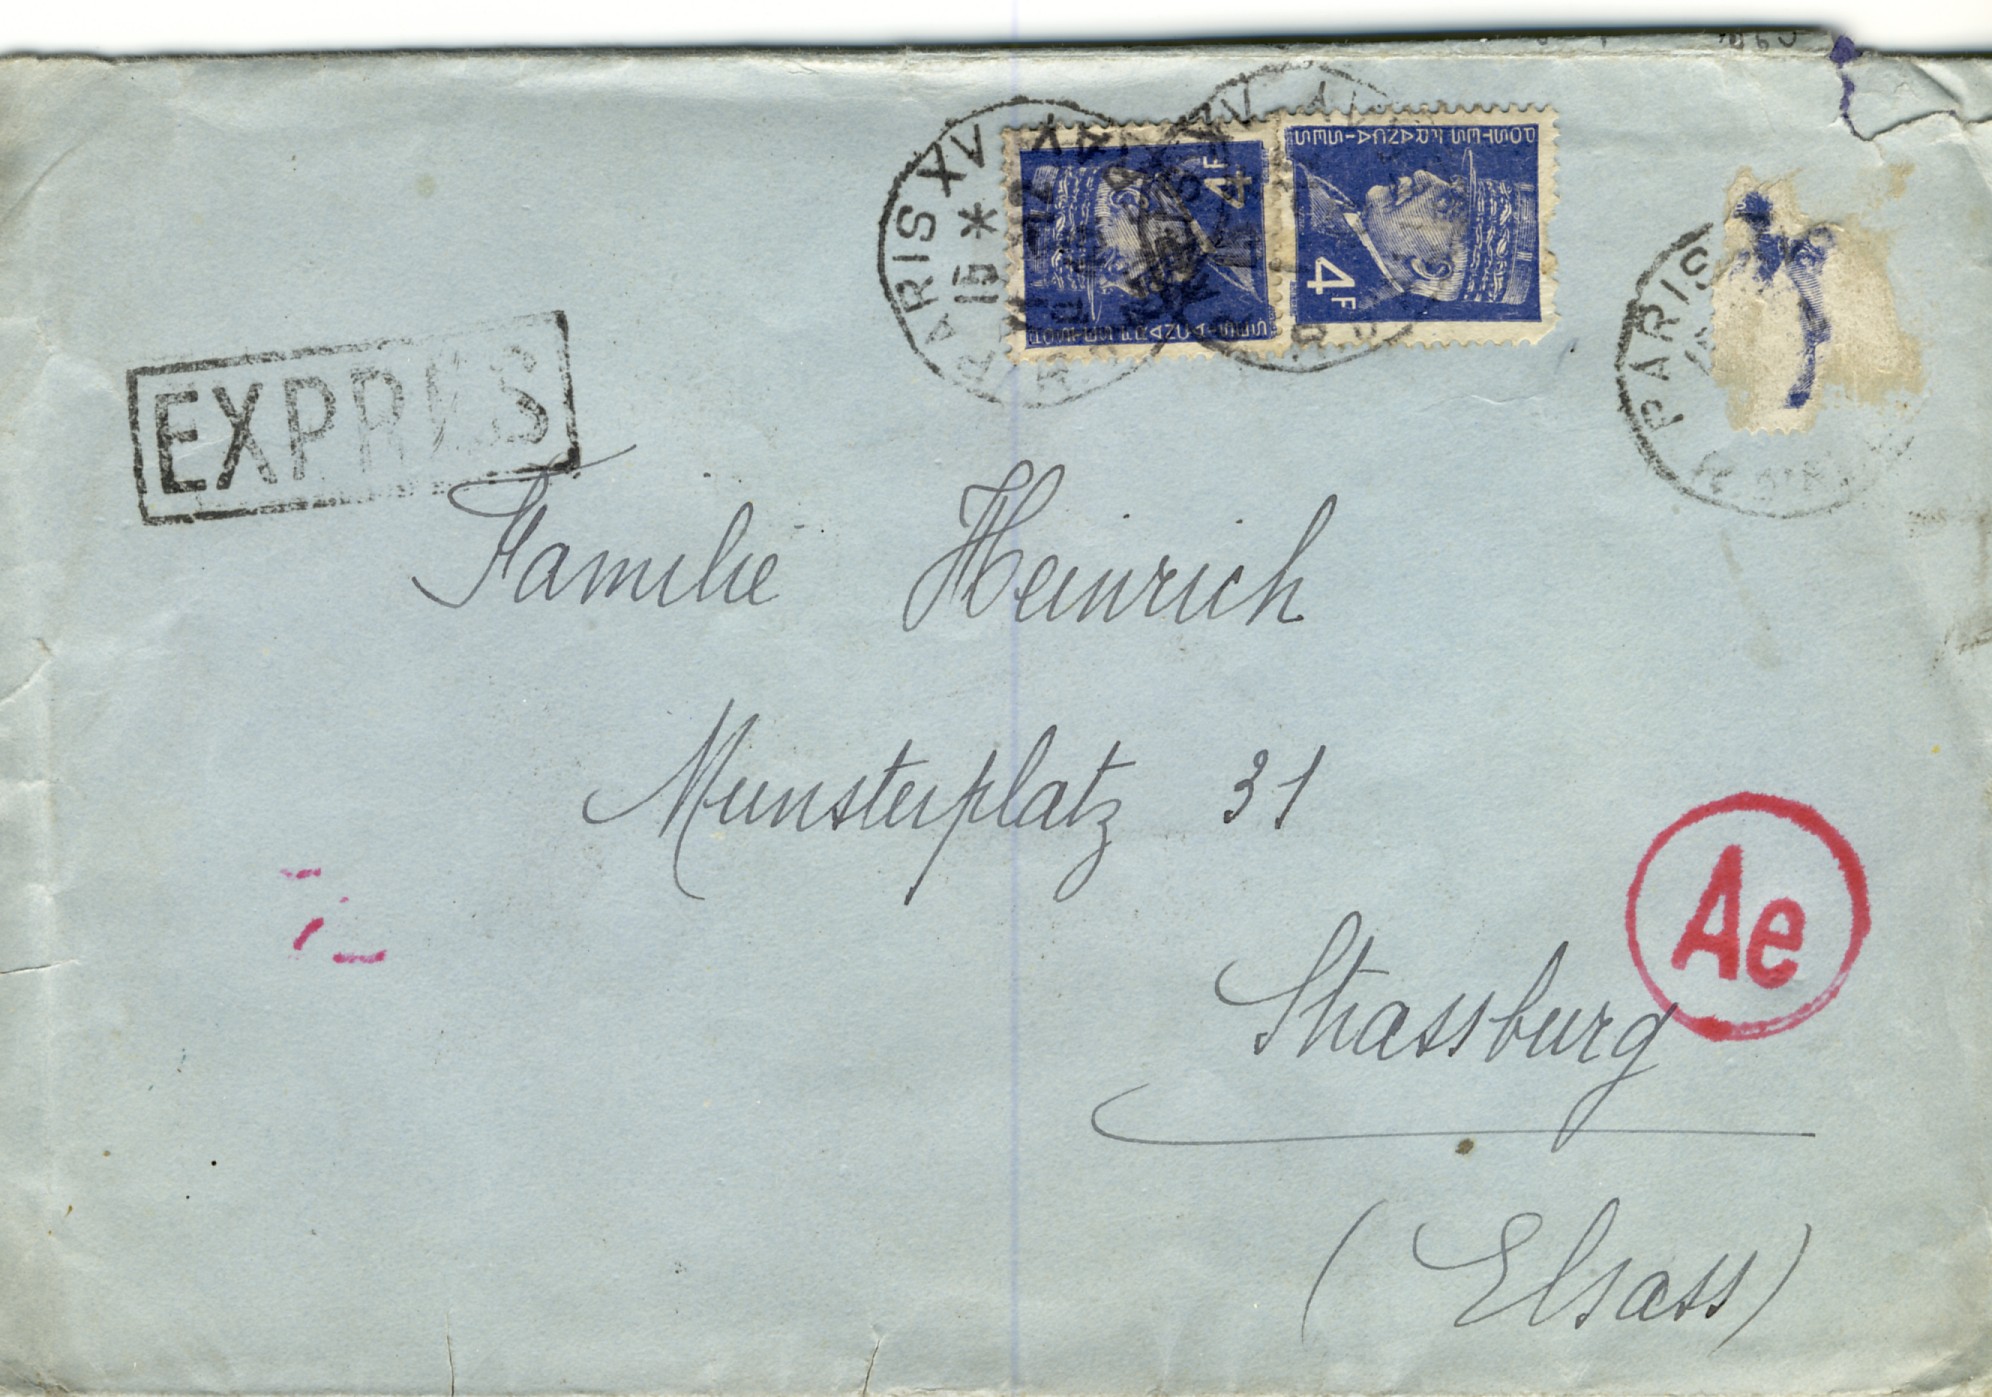 PARIS XV
15 *
4F
POSTES FRANÇAISES
POSTES FRANÇAISES
4F
PARIS
EXPRES
Familie Heinrich
Munsterplatz 31
Ae
Strassburg
(Elsass)